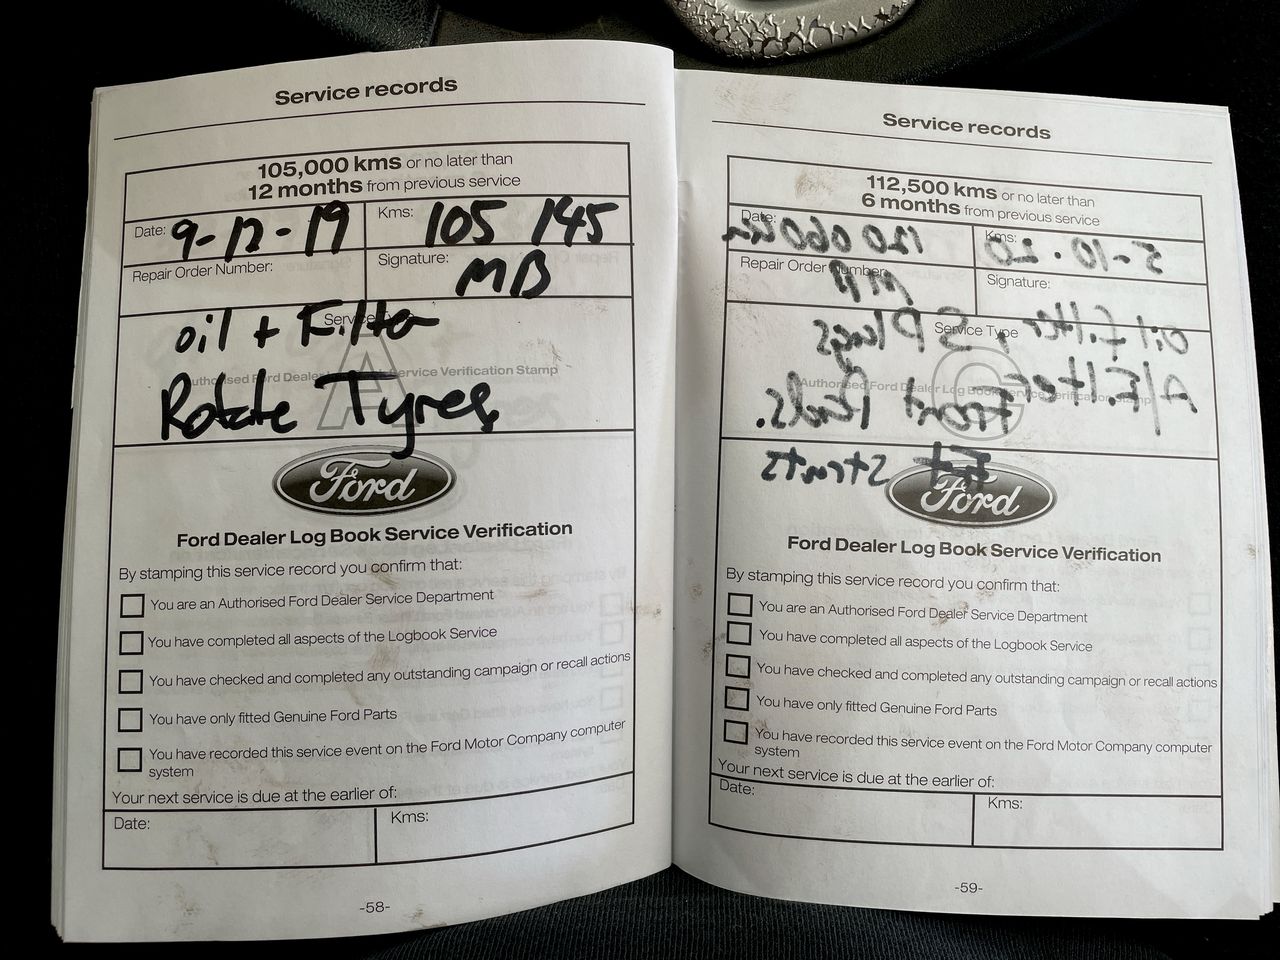 Service records
105,000 kms or no later than
12 months from previous service
Date: 9-12-19 Kms: 105 145
Repair Order Number: Signature: MB
Service
oil + Filter
A
Authorised Ford Dealer Service Verification Stamp
Rotate Tyres
Ford
Ford Dealer Log Book Service Verification
By stamping this service record you confirm that:
You are an Authorised Ford Dealer Service Department
You have completed all aspects of the Logbook Service
You have checked and completed any outstanding campaign or recall actions
You have only fitted Genuine Ford Parts
You have recorded this service event on the Ford Motor Company computer
system
Your next service is due at the earlier of:
Date: Kms:
-58-
Service records
112,500 kms or no later than
6 months from previous service
Date: 120 060 Km Kms: 5-10-20
Repair Order Number: Signature:
Service Type
oil filter, S Plugs
C
Authorised Ford Dealer Log Book Service Verification Stamp
A/Filter Front Pads.
Struts
Ford
Ford Dealer Log Book Service Verification
By stamping this service record you confirm that:
You are an Authorised Ford Dealer Service Department
You have completed all aspects of the Logbook Service
You have checked and completed any outstanding campaign or recall actions
You have only fitted Genuine Ford Parts
You have recorded this service event on the Ford Motor Company computer
system
Your next service is due at the earlier of:
Date: Kms:
-59-